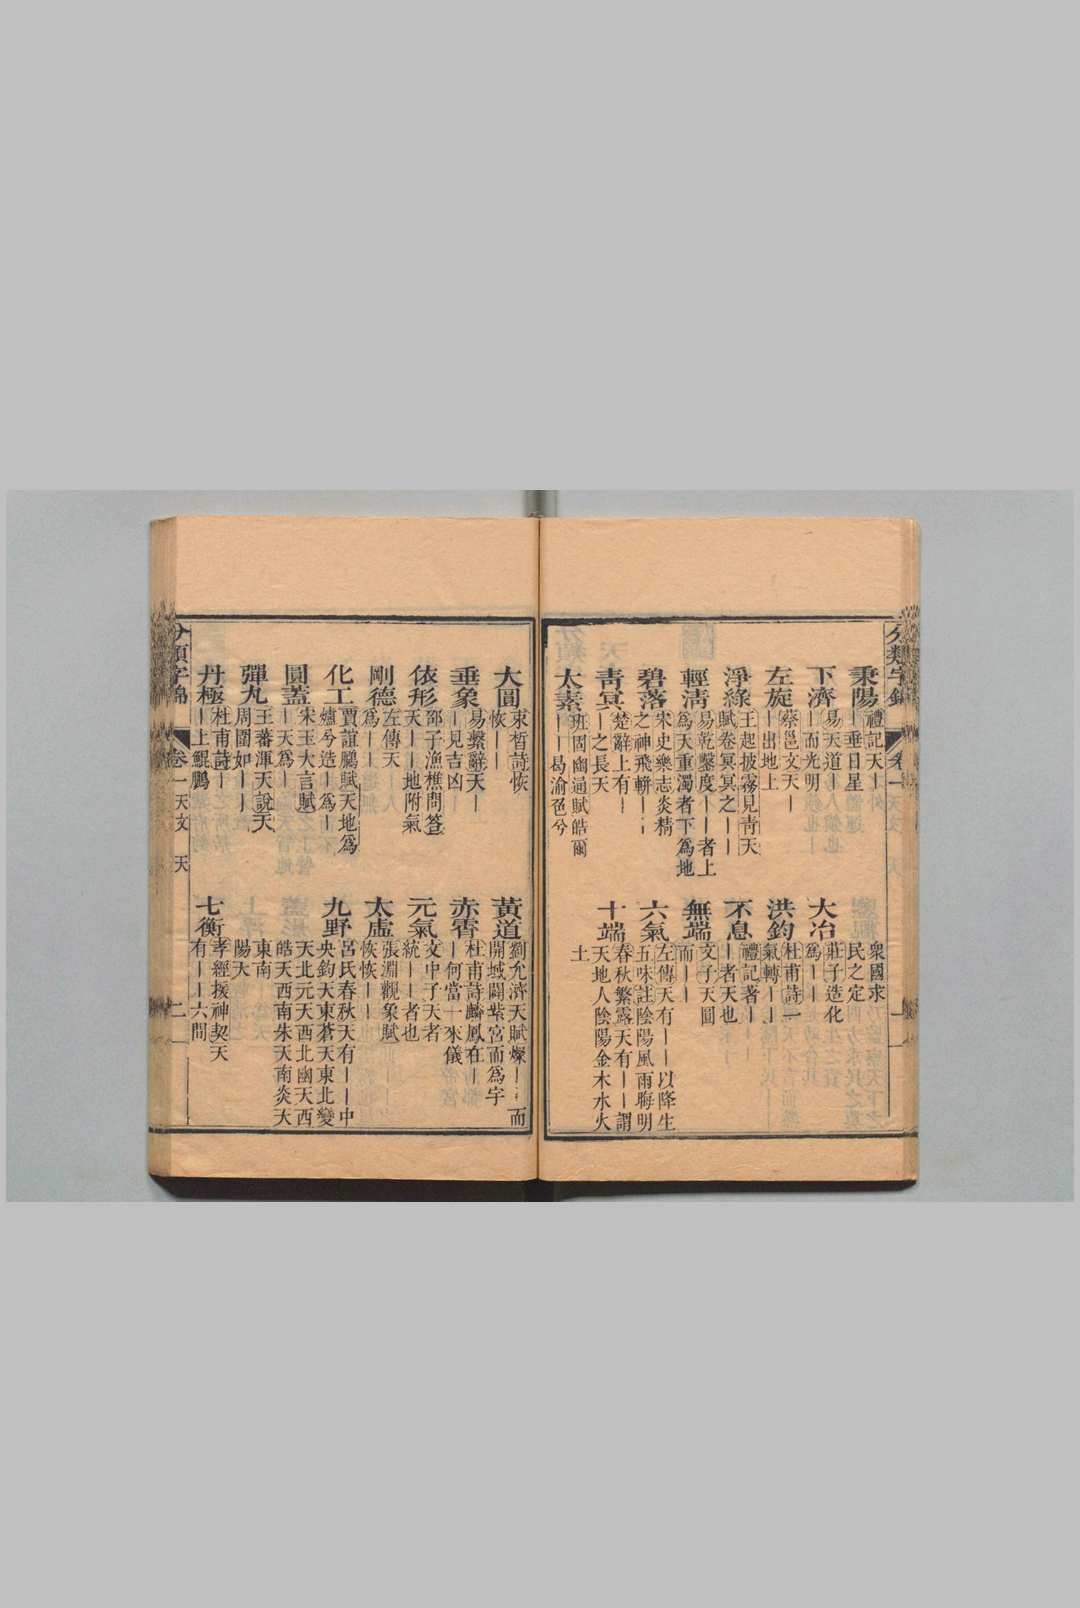 分類字錦 卷一 天文 天 一
秉陽 禮記天丨
丨垂日星
衆國求
民之定
下濟 易天道
丨丨而光明
大冶 莊子造化
爲丨丨
左旋 蔡邕文天丨
丨出地上
洪鈞 杜甫詩一
氣轉丨丨
淨綠 王起披霧見青天
賦卷冥冥之丨丨
不息 禮記著丨
丨者天也
輕清 易乾鑿度丨丨者上
爲天重濁者下爲地
無端 文子天圓
而丨丨
碧落 宋史樂志炎精
之神飛軿丨丨
六氣 左傳天有丨丨以降生
五味註陰陽風雨晦明
青冥 楚辭上有丨
丨之長天
十端 春秋繁露天有丨丨謂
天地人陰陽金木水火
土
太素 班固幽通賦皓爾
丨丨曷渝色兮
大圓 束晳詩恢
恢丨丨
黃道 劉允濟天賦燦丨丨而
開域闢紫宮而爲宇
垂象 易繫辭天丨
丨見吉凶
赤霄 杜甫詩麟鳳在丨
丨何當十來儀
依形 邵子漁樵問答
天丨丨地附氣
元氣 文中子天者
統丨丨者也
剛德 左傳天
爲丨丨
太虛 張淵觀象賦
恢恢丨丨
化工 賈誼鵩賦天地爲
爐兮造丨爲丨
九野 呂氏春秋天有丨丨中
央鈞天東蒼天東北變
天北元天西北幽天西
皓天西南朱天南炎天
東南
陽天
圓蓋 宋玉大言賦
丨天爲丨
彈丸 王蕃渾天說天
周圍如丨丨
丹極 杜甫詩丨
丨上鯤鵬
七衡 孝經援神契天
有丨丨六間
分類字錦 卷一 天文 天 二